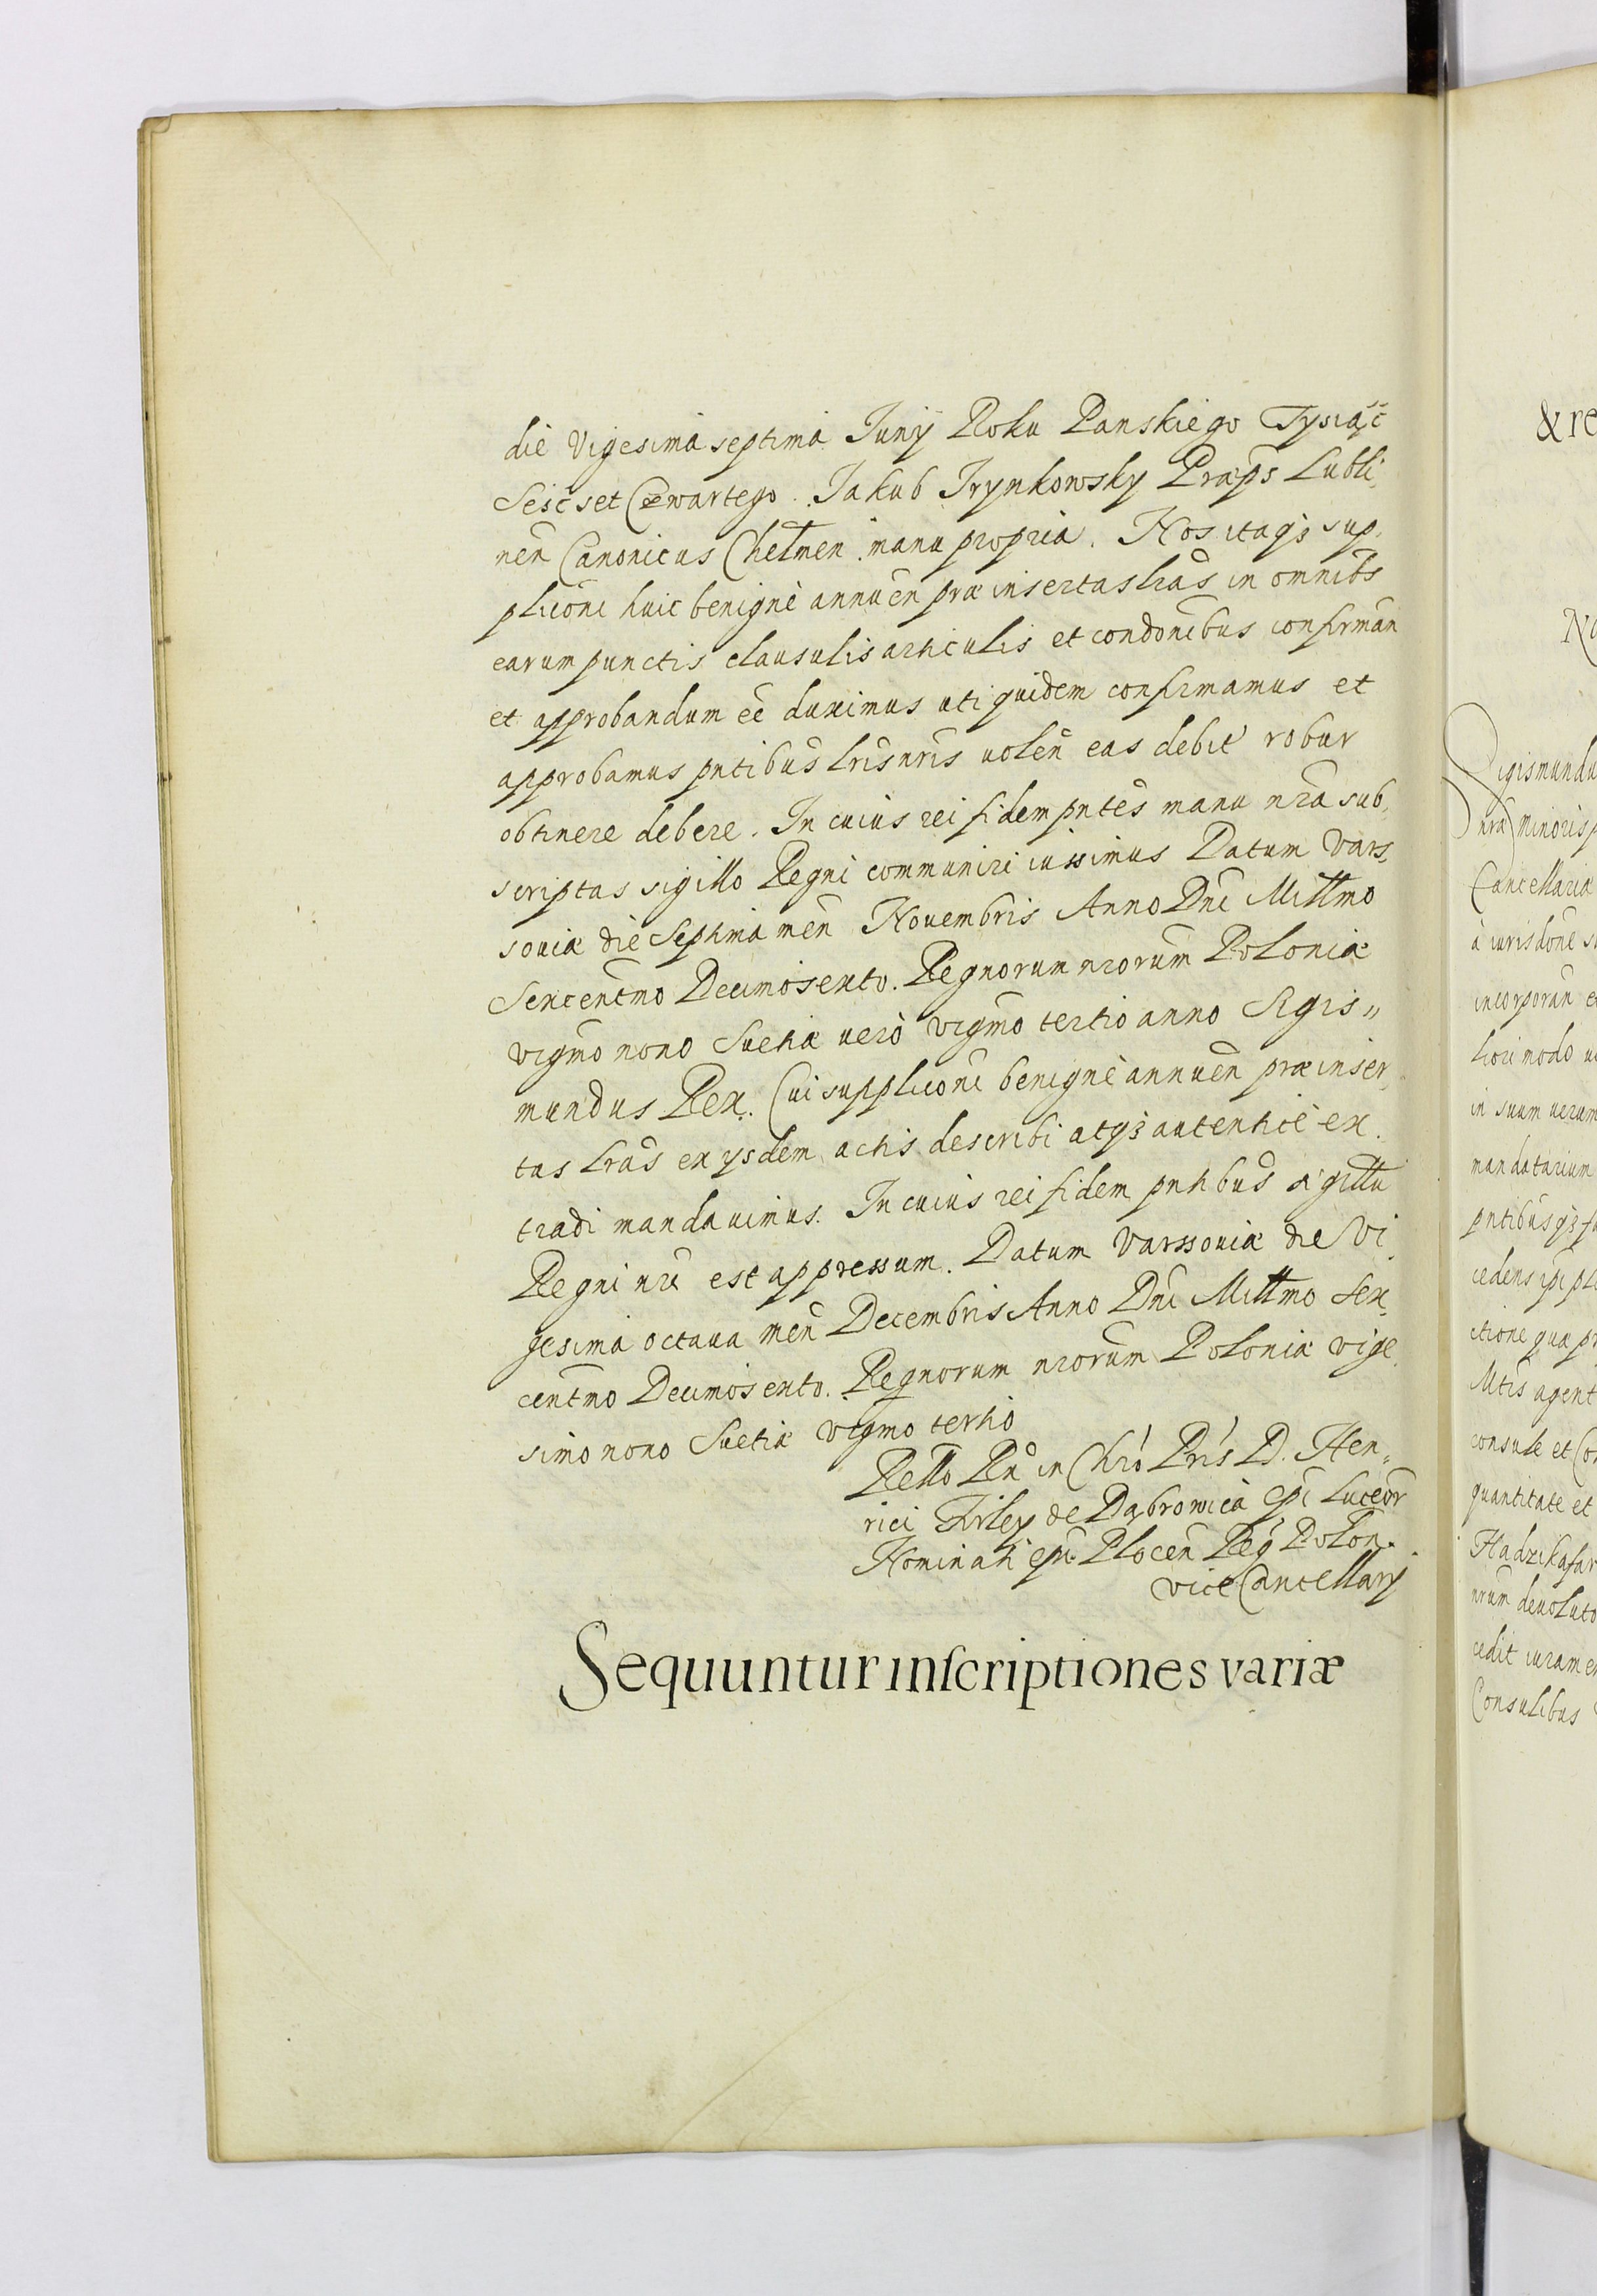 die Vigesima septima Junÿ Roku Panskiego Tysiącć
Seśc set Czwartego. Jakub Jrynkowsky Præps̃ Lubli,
neñ Canonicus Chełmeñ manu propria. Nos itaqꝫ sup,
plicõni huic benignè annueñ præinsertas lr̃as in omnibs̃
earum punctis clausulis articulis et condõnibus confirmañ
et approbandum eẽ duximus uti quidem confirmamus et
approbamus pñtibus lr̃is nr̃is voleñ eas debit̃ robur
obtinere debere. In cuius rei fidem pñtes manu nr̃a sub,
scriptas sigillo Regni communiri iussimus Datum Vars,
souiæ die Septima meñ Nouembris Anno Dñi Mill̃mo
Sexcent̃mo Decimosexto. Regnorum nr̃orum Poloniæ
vigm̃o nono Suetiæ verò vigm̃o tertio anno Sigis,,
mundus Rex. Cui supplicõni benignè annueñ præinser,
tas lr̃as ex ysdem actis describi atqꝫ autentice ex,
tradi mandauimus. In cuius rei fidem pñtibus sigill̃u
Regni nr̃i est appressum. Datum Varssouiæ die Vi,
gesima octaua meñ Decembris Anno Dñi Mill̃mo Sex,
cent̃mo Decimosexto. Regnorum nr̃orum Poloniæ vige,
simo nono Suetiæ vigm̃o tertio
Rełło Rñ in Chr̃o Pr̃is D. Hen,,
rici Firley de Dąbrowica Epĩ Luceor̃
Nominati Epĩ Ploceñ Reg̃ Poloñ.
vice Cancellarÿ
Sequuntur inſcriptiones variæ
& re
Sigismundu
nr̃a minoris
Cancellaria
à iurisdõne
incorporañ
in suum verum
mandatarium
pñtibusqꝫ
ctione quæ
Mtis agent
consule et
quantitate et
nr̃um deuoluto
cedit
Consulibus